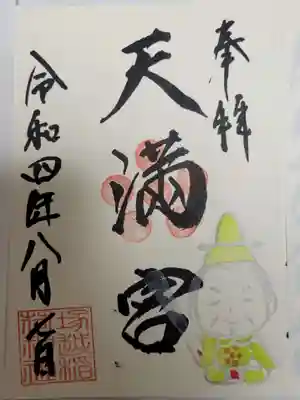 奉拝
天満宮
令和四年八月七日